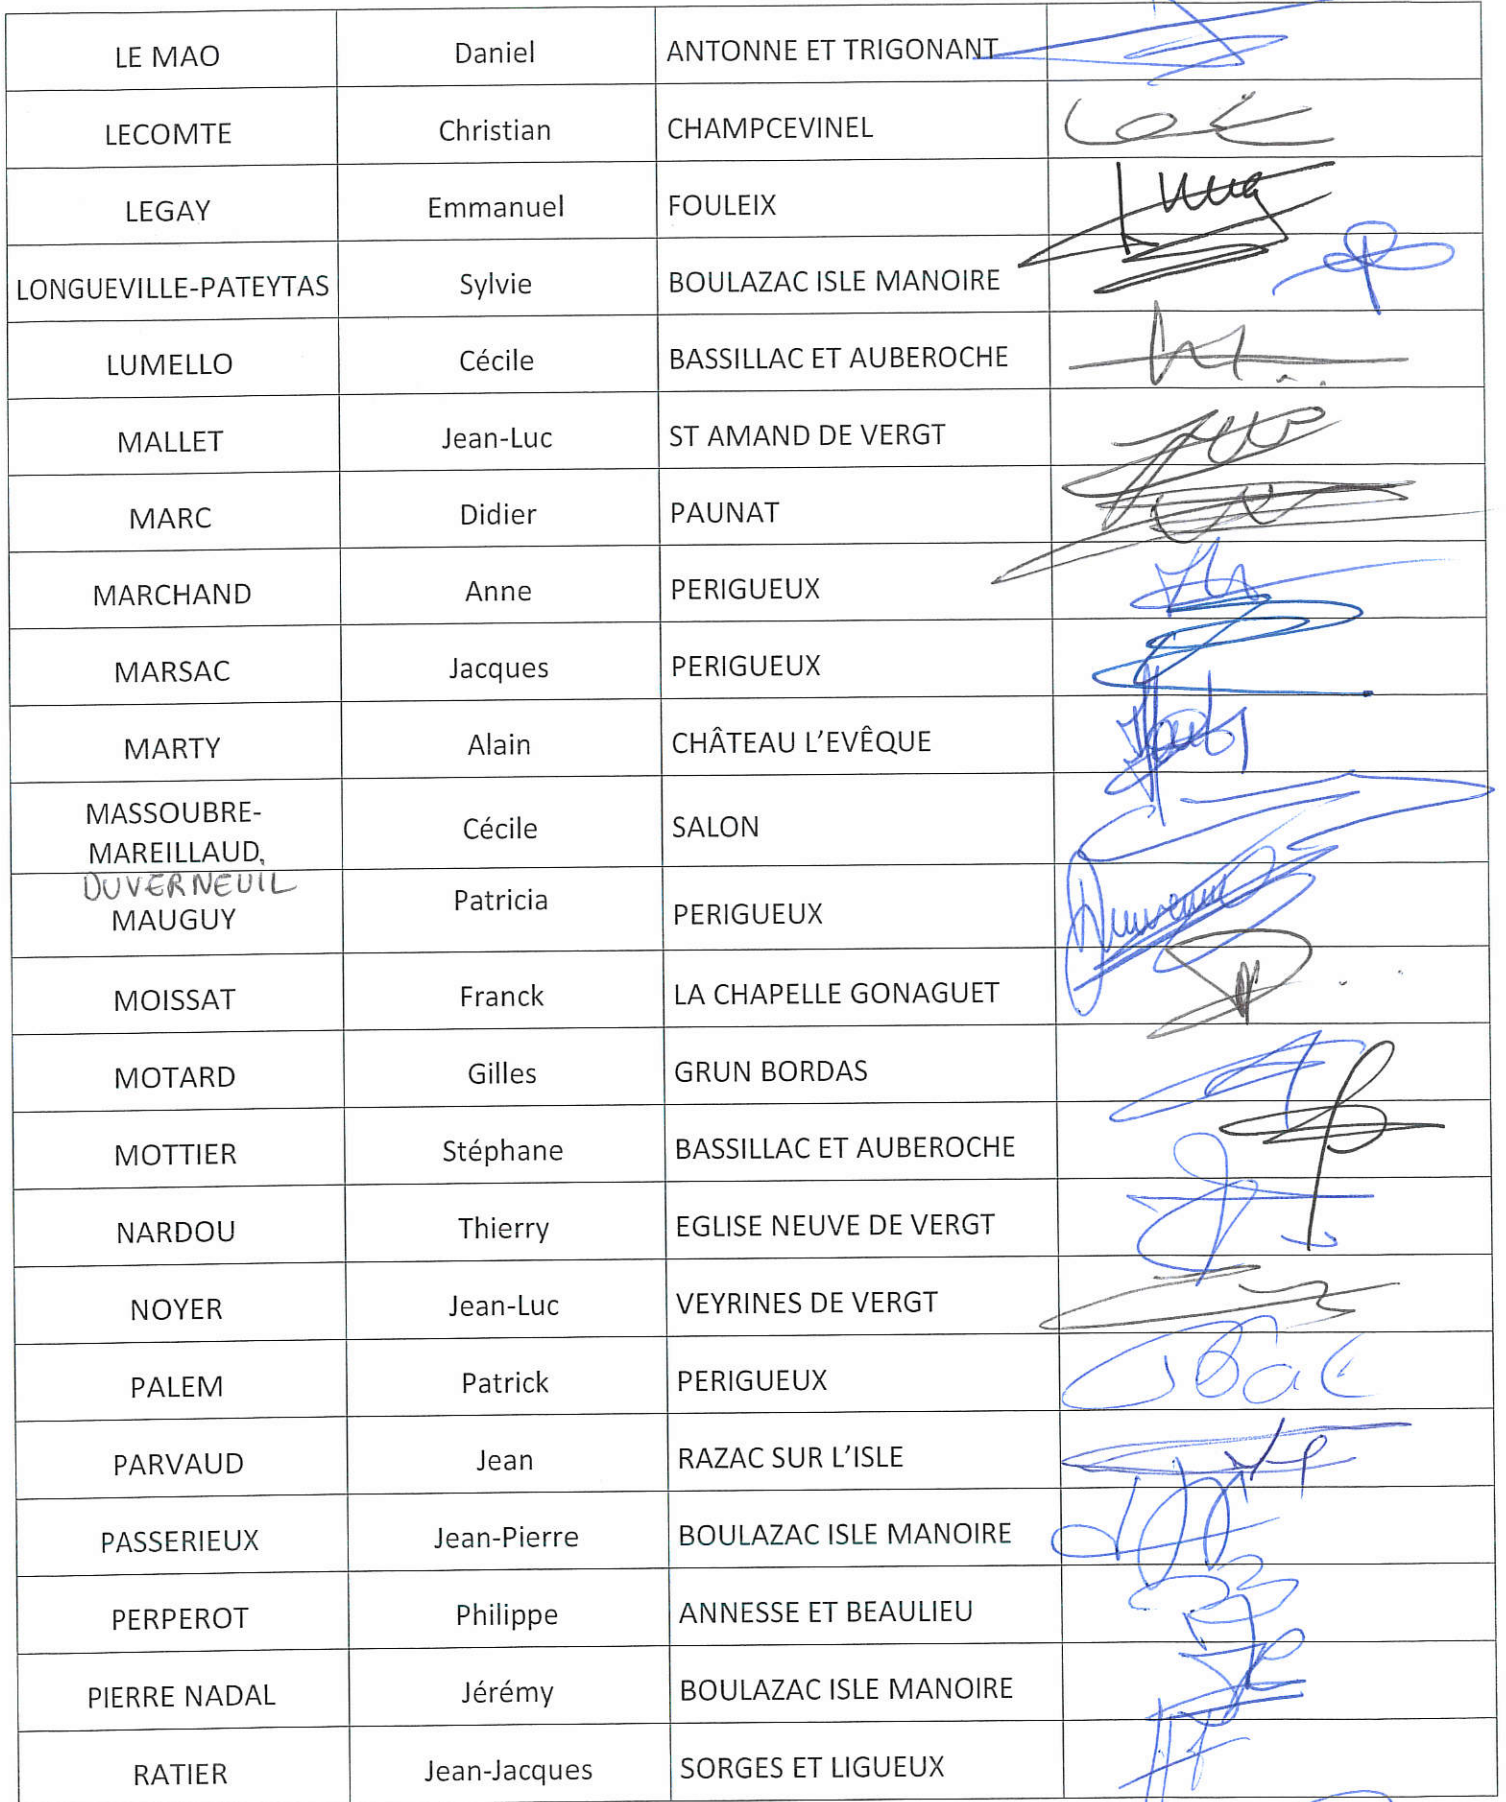 LE MAO Daniel ANTONNE ET TRIGONANT
LECOMTE Christian CHAMPCEVINEL
LEGAY Emmanuel FOULEIX
LONGUEVILLE-PATEYTAS Sylvie BOULAZAC ISLE MANOIRE
LUMELLO Cécile BASSILLAC ET AUBEROCHE
MALLET Jean-Luc ST AMAND DE VERGT
MARC Didier PAUNAT
MARCHAND Anne PERIGUEUX
MARSAC Jacques PERIGUEUX
MARTY Alain CHÂTEAU L'EVÊQUE
MASSOUBRE-
MAREILLAUD Cécile SALON
DUVERNEUIL
MAUGUY Patricia PERIGUEUX
MOISSAT Franck LA CHAPELLE GONAGUET
MOTARD Gilles GRUN BORDAS
MOTTIER Stéphane BASSILLAC ET AUBEROCHE
NARDOU Thierry EGLISE NEUVE DE VERGT
NOYER Jean-Luc VEYRINES DE VERGT
PALEM Patrick PERIGUEUX
PARVAUD Jean RAZAC SUR L'ISLE
PASSERIEUX Jean-Pierre BOULAZAC ISLE MANOIRE
PERPEROT Philippe ANNESSE ET BEAULIEU
PIERRE NADAL Jérémy BOULAZAC ISLE MANOIRE
RATIER Jean-Jacques SORGES ET LIGUEUX